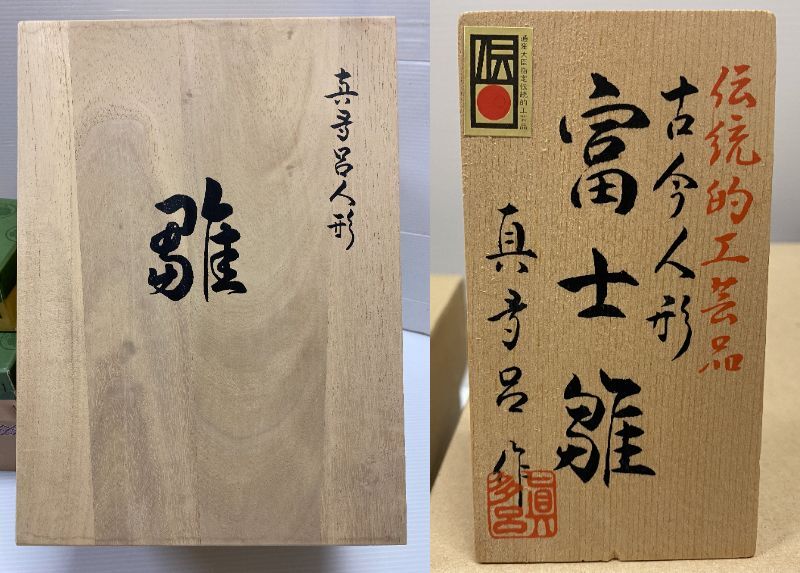 真多呂人形
雛
伝統的工芸品
古今人形
富士雛
真多呂作
伝
通産大臣指定伝統的工芸品
眞多呂